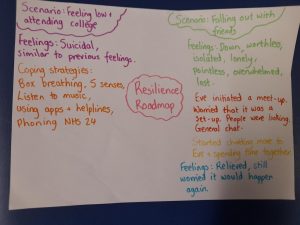 Scenario: Feeling low +
attending college
Feelings: Suicidal,
similar to previous feelings.
Coping strategies:
Box breathing, 5 senses,
Listen to music,
using apps + helplines,
Phoning NHS 24
Resilience
Roadmap
Scenario: Falling out with
friends
Feelings: Down, worthless,
isolated, lonely,
Pointless, overwhelmed,
lost.
Eve initiated a meet-up.
Worried that it was a
set-up. People were looking.
General chat.
Started chatting more to
Eve + spending time together.
Feelings: Relieved, still
worried it would happen
again.